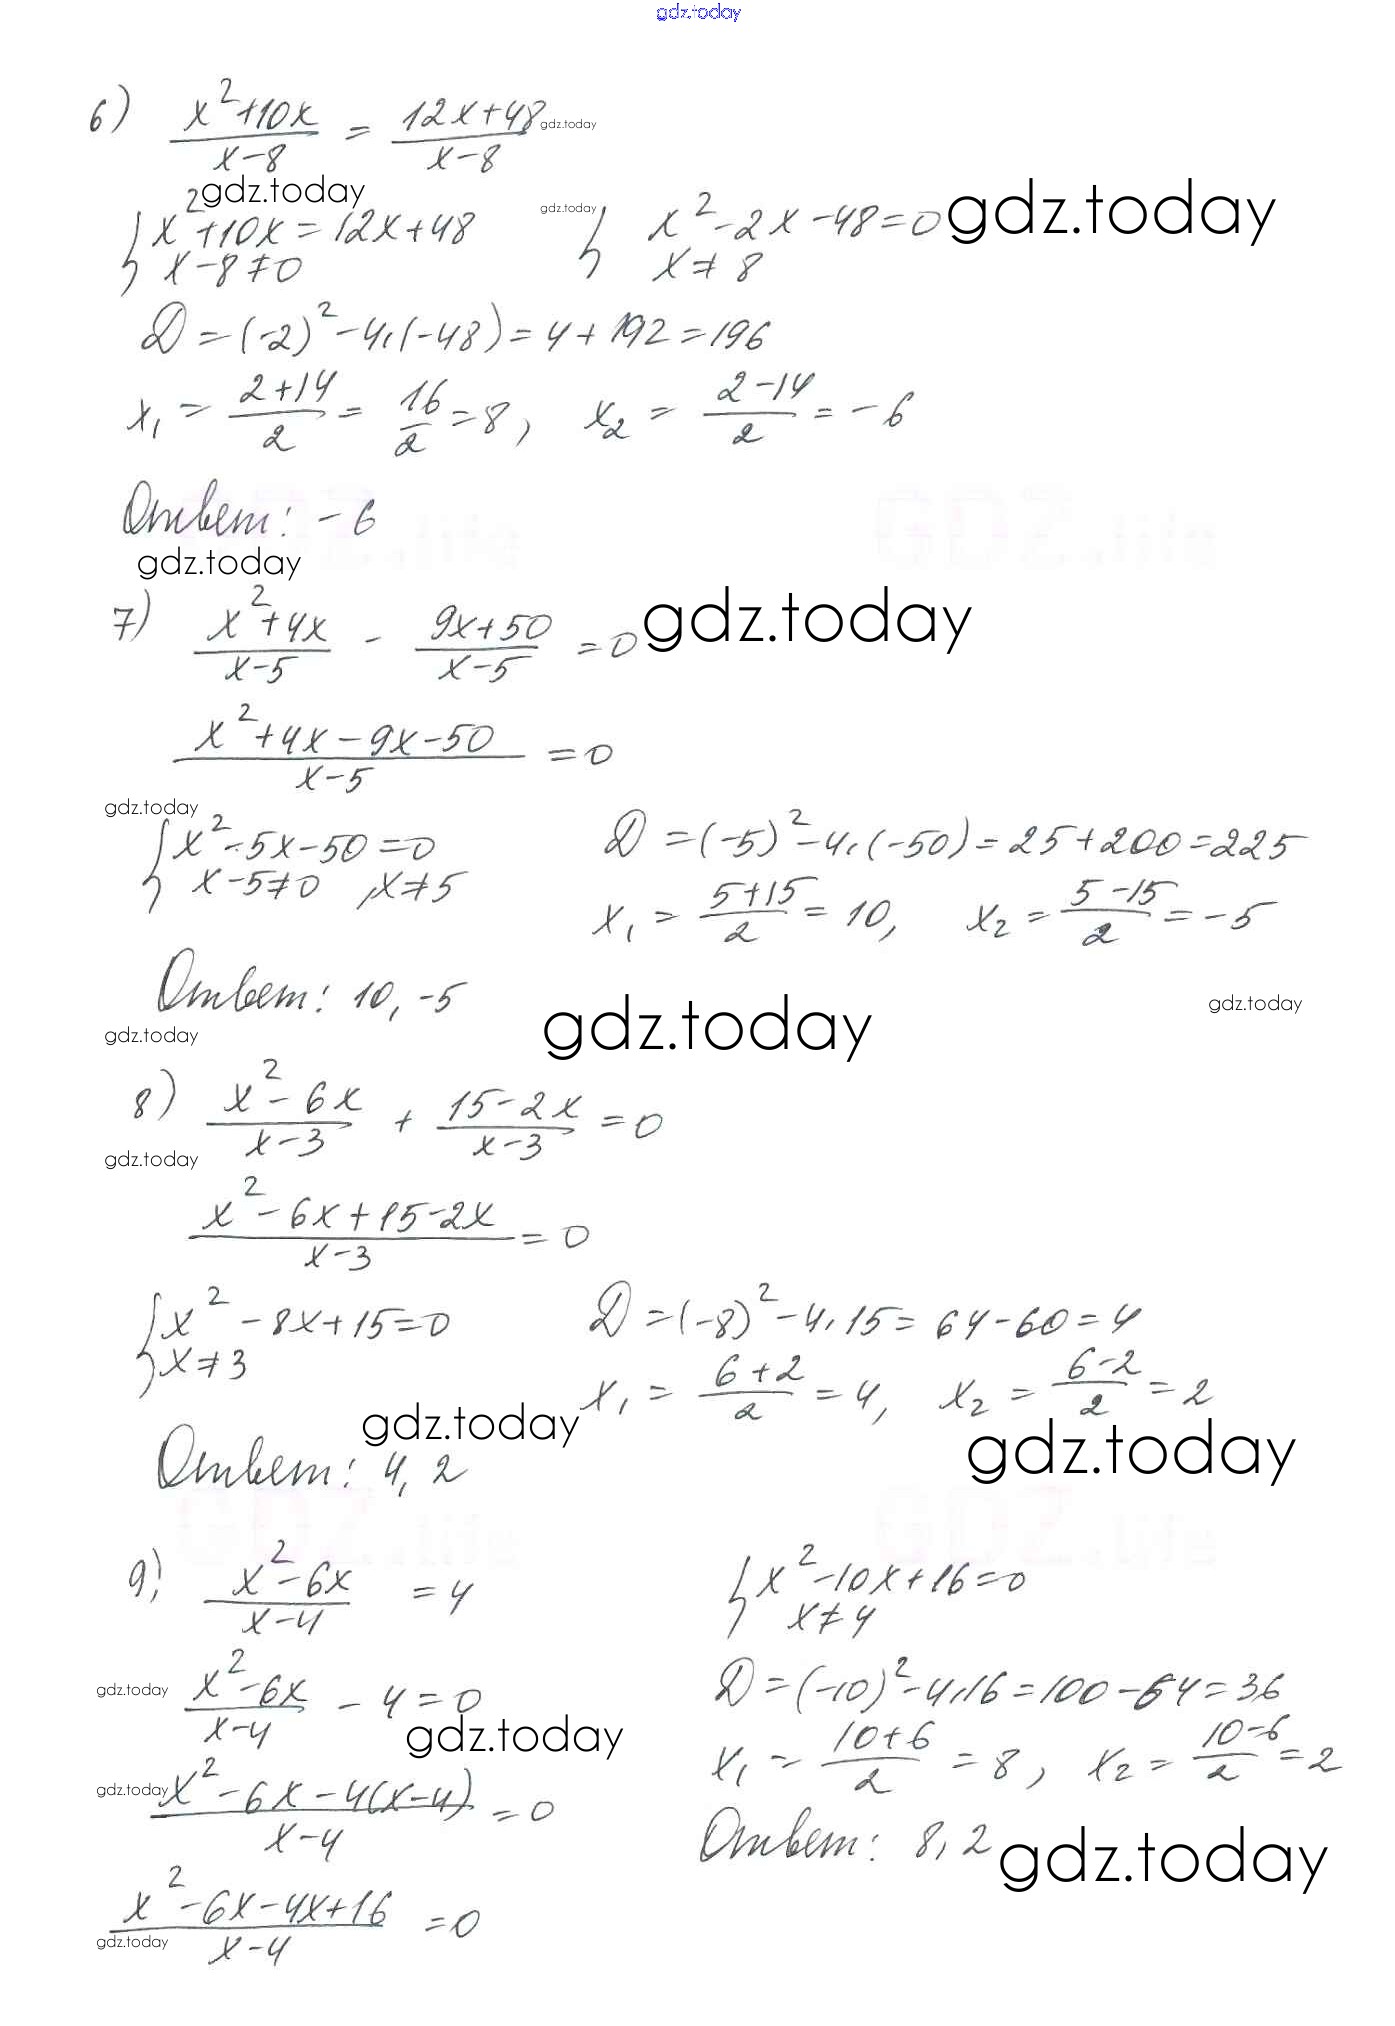 gdz.today
6) x²+10x / x-8 = 12x+48 / x-8 gdz.today
gdz.today gdz.today gdz.today
{ x²+10x=12x+48 { x²-2x-48=0
x-8≠0 x≠8
D=(-2)²-4·(-48)=4+192=196
x₁ = 2+14 / 2 = 16 / 2 = 8, x₂ = 2-14 / 2 = -6
Ответ: -6
GDZ.life
gdz.today
7) x²+4x / x-5 - 9x+50 / x-5 = 0 gdz.today
x²+4x-9x-50 / x-5 = 0
gdz.today
{ x²-5x-50=0 D=(-5)²-4·(-50)=25+200=225
x-5≠0, x≠5 x₁ = 5+15 / 2 = 10, x₂ = 5-15 / 2 = -5
Ответ: 10, -5
gdz.today gdz.today gdz.today
8) x²-6x / x-3 + 15-2x / x-3 = 0
gdz.today
x²-6x+15-2x / x-3 = 0
{ x²-8x+15=0 D=(-8)²-4·15=64-60=4
x≠3 x₁ = 6+2 / 2 = 4, x₂ = 6-2 / 2 = 2
gdz.today gdz.today
Ответ: 4, 2
GDZ.life GDZ.life
9) x²-6x / x-4 = 4 { x²-10x+16=0
x≠4
gdz.today x²-6x / x-4 - 4=0 D=(-10)²-4·16=100-64=36
gdz.today
gdz.today x²-6x-4(x-4) / x-4 = 0 x₁ = 10+6 / 2 = 8, x₂ = 10-6 / 2 = 2
Ответ: 8, 2 gdz.today
x²-6x-4x+16 / x-4 = 0
gdz.today